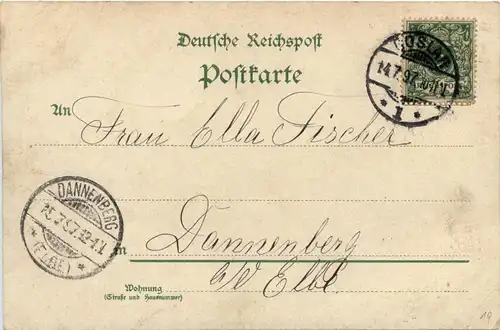 Deutsche Reichspost
Postkarte
GOSLAR
14.7.97
* 1 *
An
Frau Ella Fischer
DANNENBERG
15.7.97.
* (ELBE) *
in
Dannenberg
a/d Elbe
Wohnung
(Straße und Hausnummer)